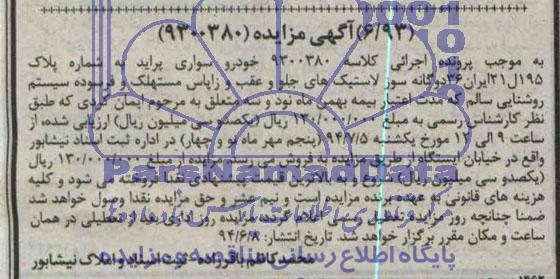 (۶/۹۳) آگهی مزایده (۹۳۰۰۳۸۰)
به موجب پرونده اجرائی کلاسه ۹۳۰۰۳۸۰ خودرو سواری پراید به شماره پلاک
۱۹۵ل۲۱ایران۳۶دوگانه سوز لاستیک های جلو و عقب و زاپاس مستهلک و فرسوده سیستم
روشنایی سالم که مدت اعتبار بیمه بهمن ماه نود و سه متعلق به مرحوم ایمان گردی که طبق
نظر کارشناس رسمی به مبلغ ۱۳۰/۰۰۰/۰۰۰ ریال (یکصدو سی میلیون ریال) ارزیابی شده، از
ساعت ۹ الی ۱۲ مورخ یکشنبه ۹۴/۷/۵ (پنجم مهر ماه نو و چهار) در اداره ثبت اسناد نیشابور
واقع در خیابان ایستگاه از طریق مزایده به فروش می رسد. مزایده از مبلغ ۱۳۰/۰۰۰/۰۰۰ ریال
(یکصدو سی میلیون ریال) شروع و به بالاترین قیمت پیشنهادی نقدا فروخته می شود و کلیه
هزینه های قانونی به عهده برنده مزایده است و نیم عشر و حق مزایده نقدا وصول خواهد شد
ضمنا چنانچه روز مزایده تعطیل رسمی اعلام گردد مزایده روز اداری بعد از تعطیلی در همان
ساعت و مکان مقرر برگزار خواهد شد. تاریخ انتشار: ۹۴/۶/۸
محمد کاظم باقرزاده ثبت اسناد و املاک نیشابور
ParsNamadData
پایگاه اطلاع رسانی مناقصه و مزایده